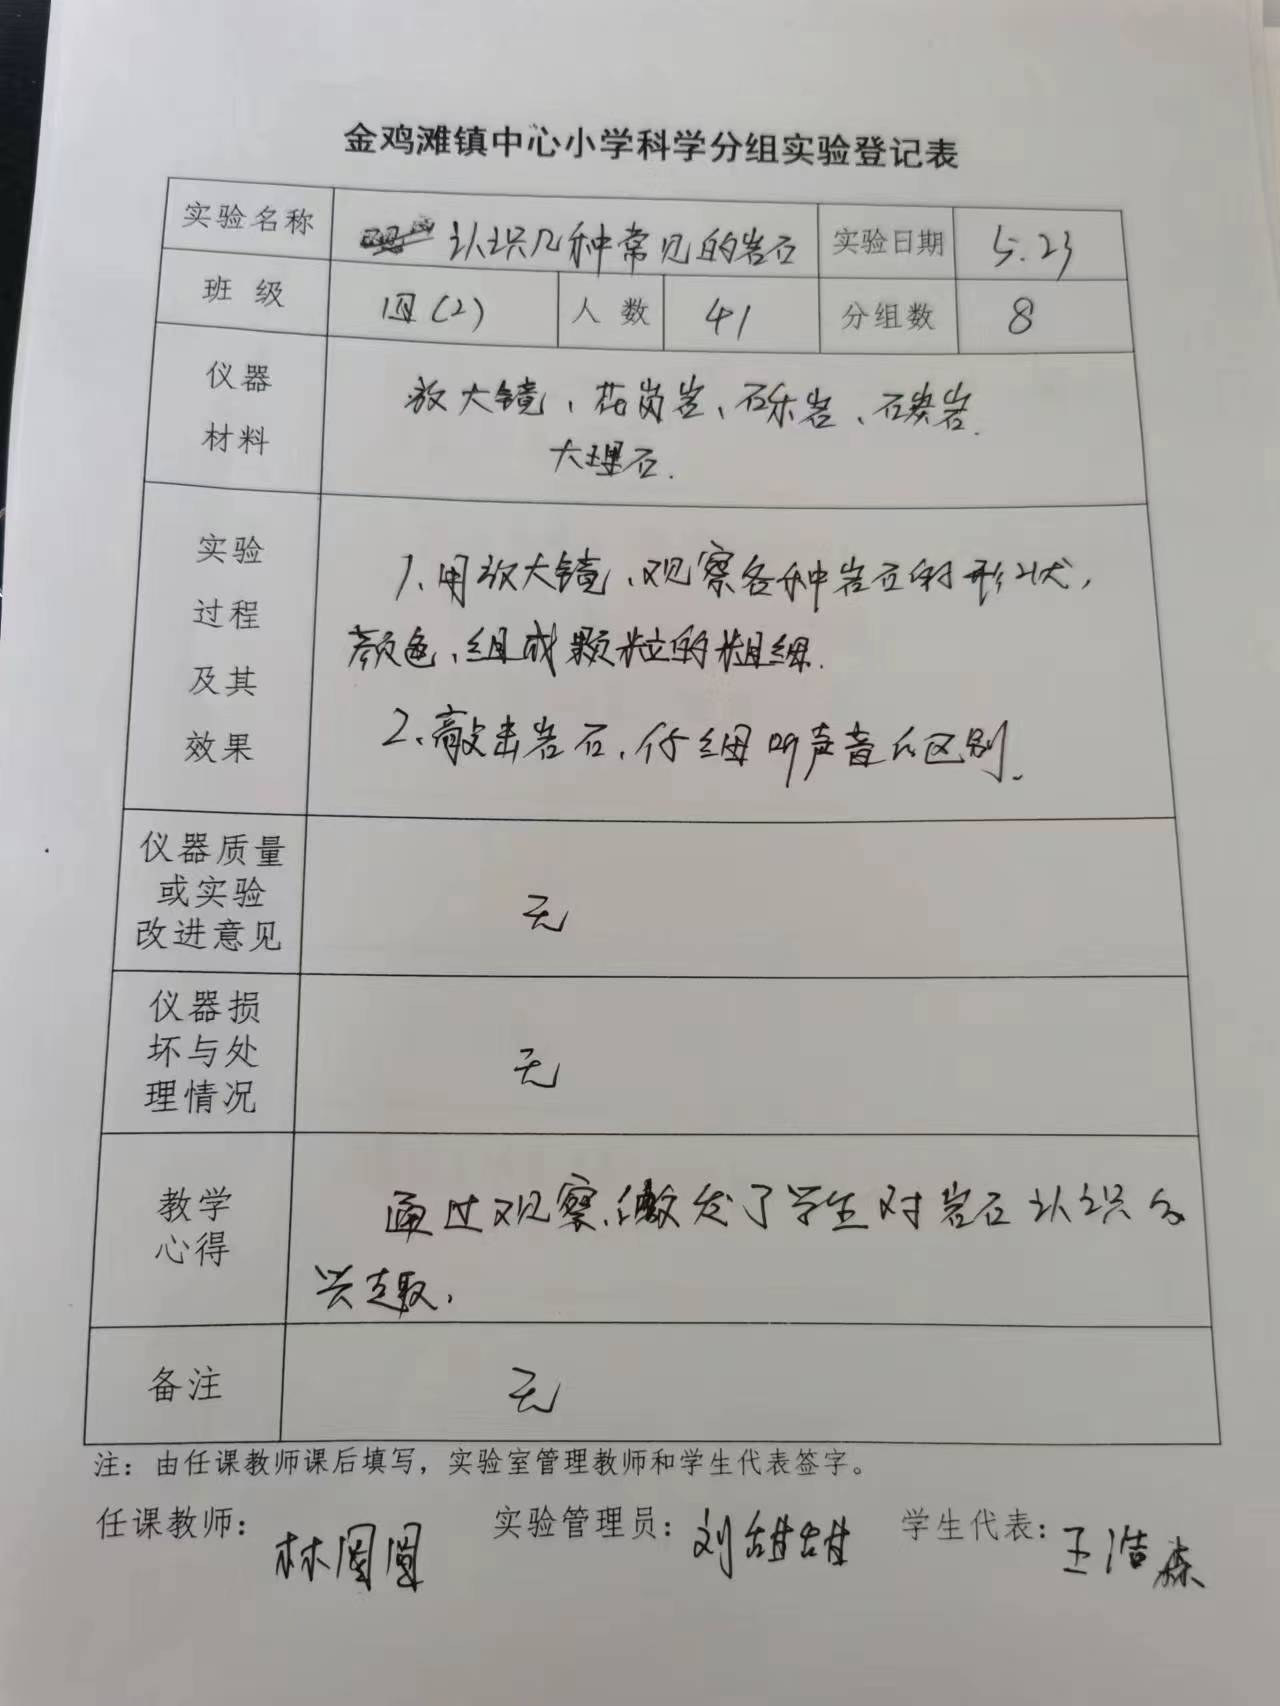 金鸡滩镇中心小学科学分组实验登记表
实验名称 认识几种常见的岩石 实验日期 5.23
班级 四(2) 人数 41 分组数 8
仪器
材料
放大镜、花岗岩、砾岩、
大理石.
实验
过程
及其
效果
1、用放大镜、观察各种岩石的形状,
颜色、组成颗粒的粗细.
2、敲击岩石、仔细听声音的区别.
仪器质量
或实验
改进意见
无
仪器损
坏与处
理情况
无
教学
心得
通过观察、激发了学生对岩石认识的
兴趣.
备注
无
注：由任课教师课后填写，实验室管理教师和学生代表签字。
任课教师：林圆圆 实验管理员：刘甜甜 学生代表：王浩森